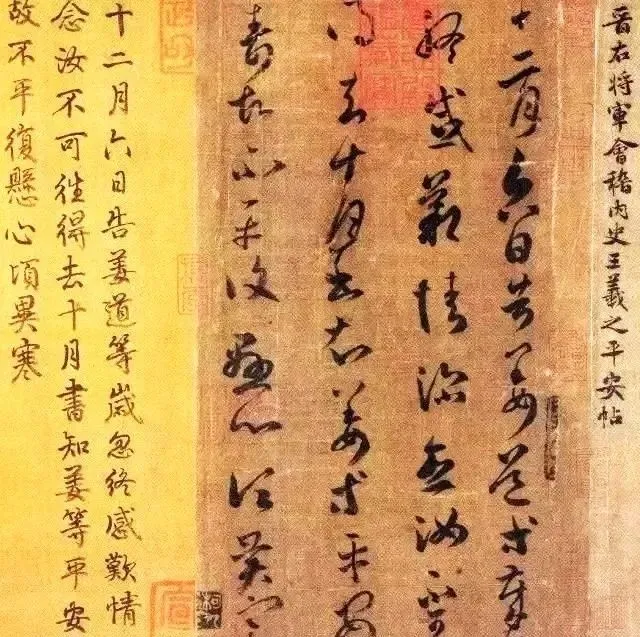 晋右將軍會稽内史王羲之平安帖
十二月六日告姜道等歲
終感歎情深念汝不可
得去十月書知姜等平安
壽故不平復懸心頃異寒
十二月六日告姜道等歲忽終感歎情
念汝不可往得去十月書知姜等平安
故不平復懸心頃異寒